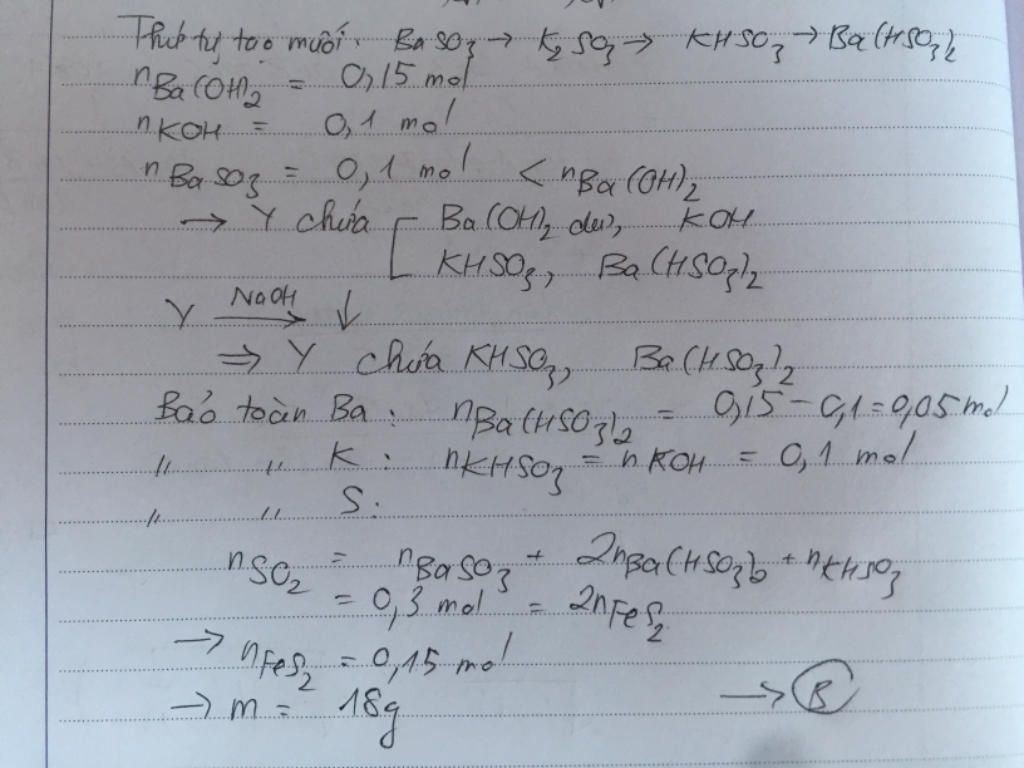 Thứ tự tạo muối: BaSO₃ → K₂SO₃ → KHSO₃ → Ba(HSO₃)₂
nBa(OH)₂ = 0,15 mol
nKOH = 0,1 mol
nBaSO₃ = 0,1 mol < nBa(OH)₂
→ Y chứa [ Ba(OH)₂ dư, KOH
KHSO₃, Ba(HSO₃)₂
Y NaOH→ ↓
⇒ Y chứa KHSO₃, Ba(HSO₃)₂
Bảo toàn Ba: nBa(HSO₃)₂ = 0,15 - 0,1 = 0,05 mol
〃 〃 K: nKHSO₃ = nKOH = 0,1 mol
〃 〃 S:
nSO₂ = nBaSO₃ + 2nBa(HSO₃)₂ + nKHSO₃
= 0,3 mol = 2nFeS₂
→ nFeS₂ = 0,15 mol
→ m = 18g → B